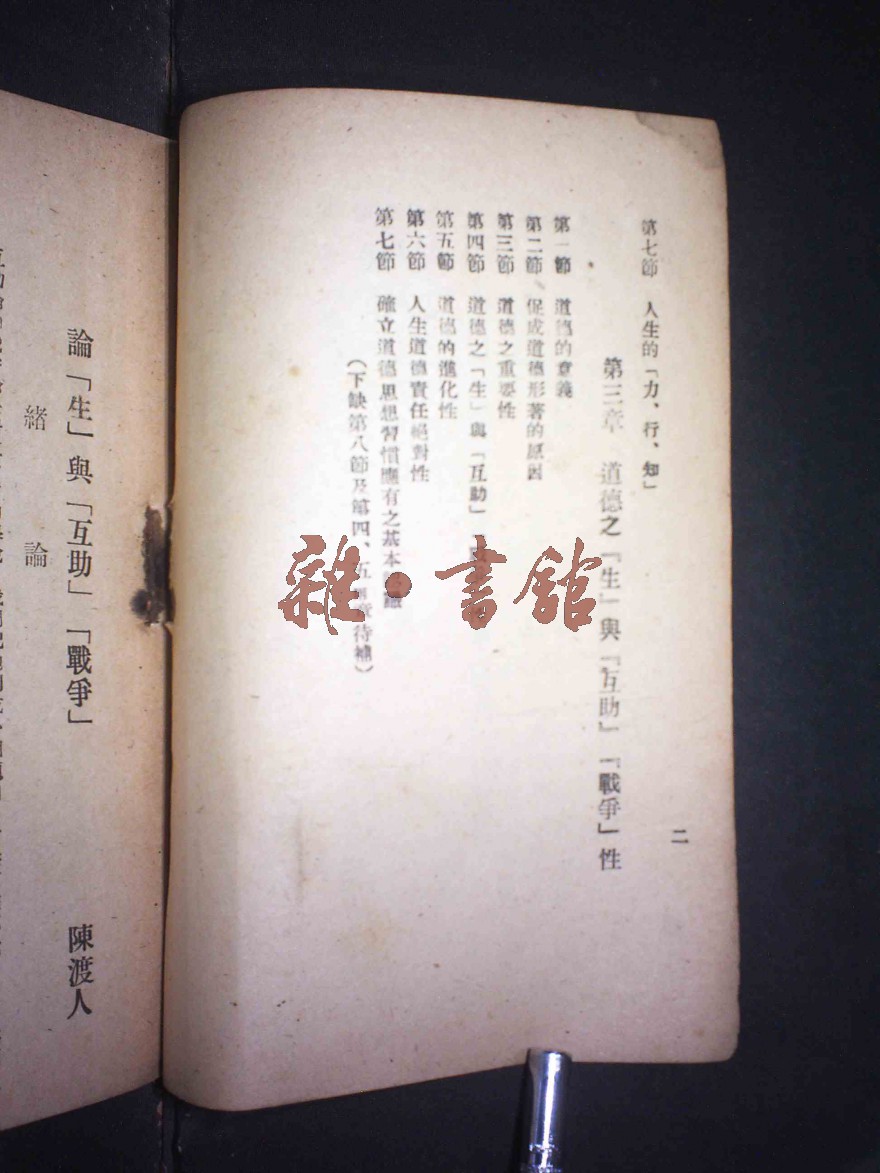 第七節　人生的「力、行、知」
第三章　道德之「生」與「互助」「戰爭」性
第一節　道德的意義
第二節　促成道德形著的原因
第三節　道德之重要性
第四節　道德之「生」與「互助」
第五節　道德的進化性
第六節　人生道德責任絕對性
第七節　確立道德思想習慣應有之基本
（下缺第八節及第四、五　章待補）
二
雜·書館
論「生」與「互助」「戰爭」
陳渡人
緒　論